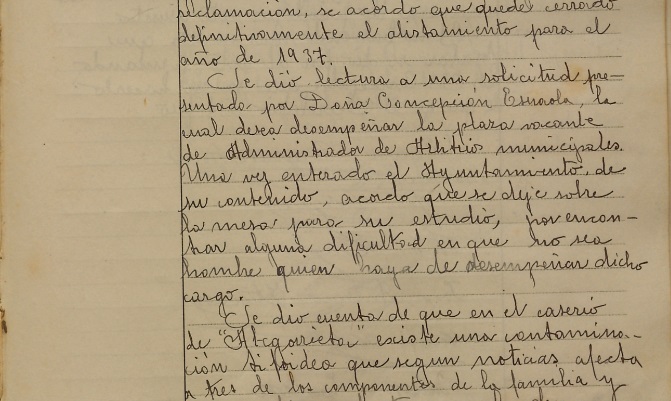 reclamación, se acordo que quede cerrado
definitivamente el alistamiento para el
año de 1937.
Se dió lectura a una solicitud pre-
sentada por Doña Concepción la
cual desea desempeñar la plaza vacante
de Administrador de Arbitrios municipales.
Una vez enterado el Ayuntamiento, de
su contenido, acordo que se deje sobre
la mesa para su estudio, por encon-
trar alguna dificultad en que no sea
hombre quien haya de desempeñar dicho
cargo.
Se dio cuenta de que en el caserio
de "Altegarieta" existe una contamina-
ción tifoidea que segun noticias afecta
a tres de los componentes de la familia y